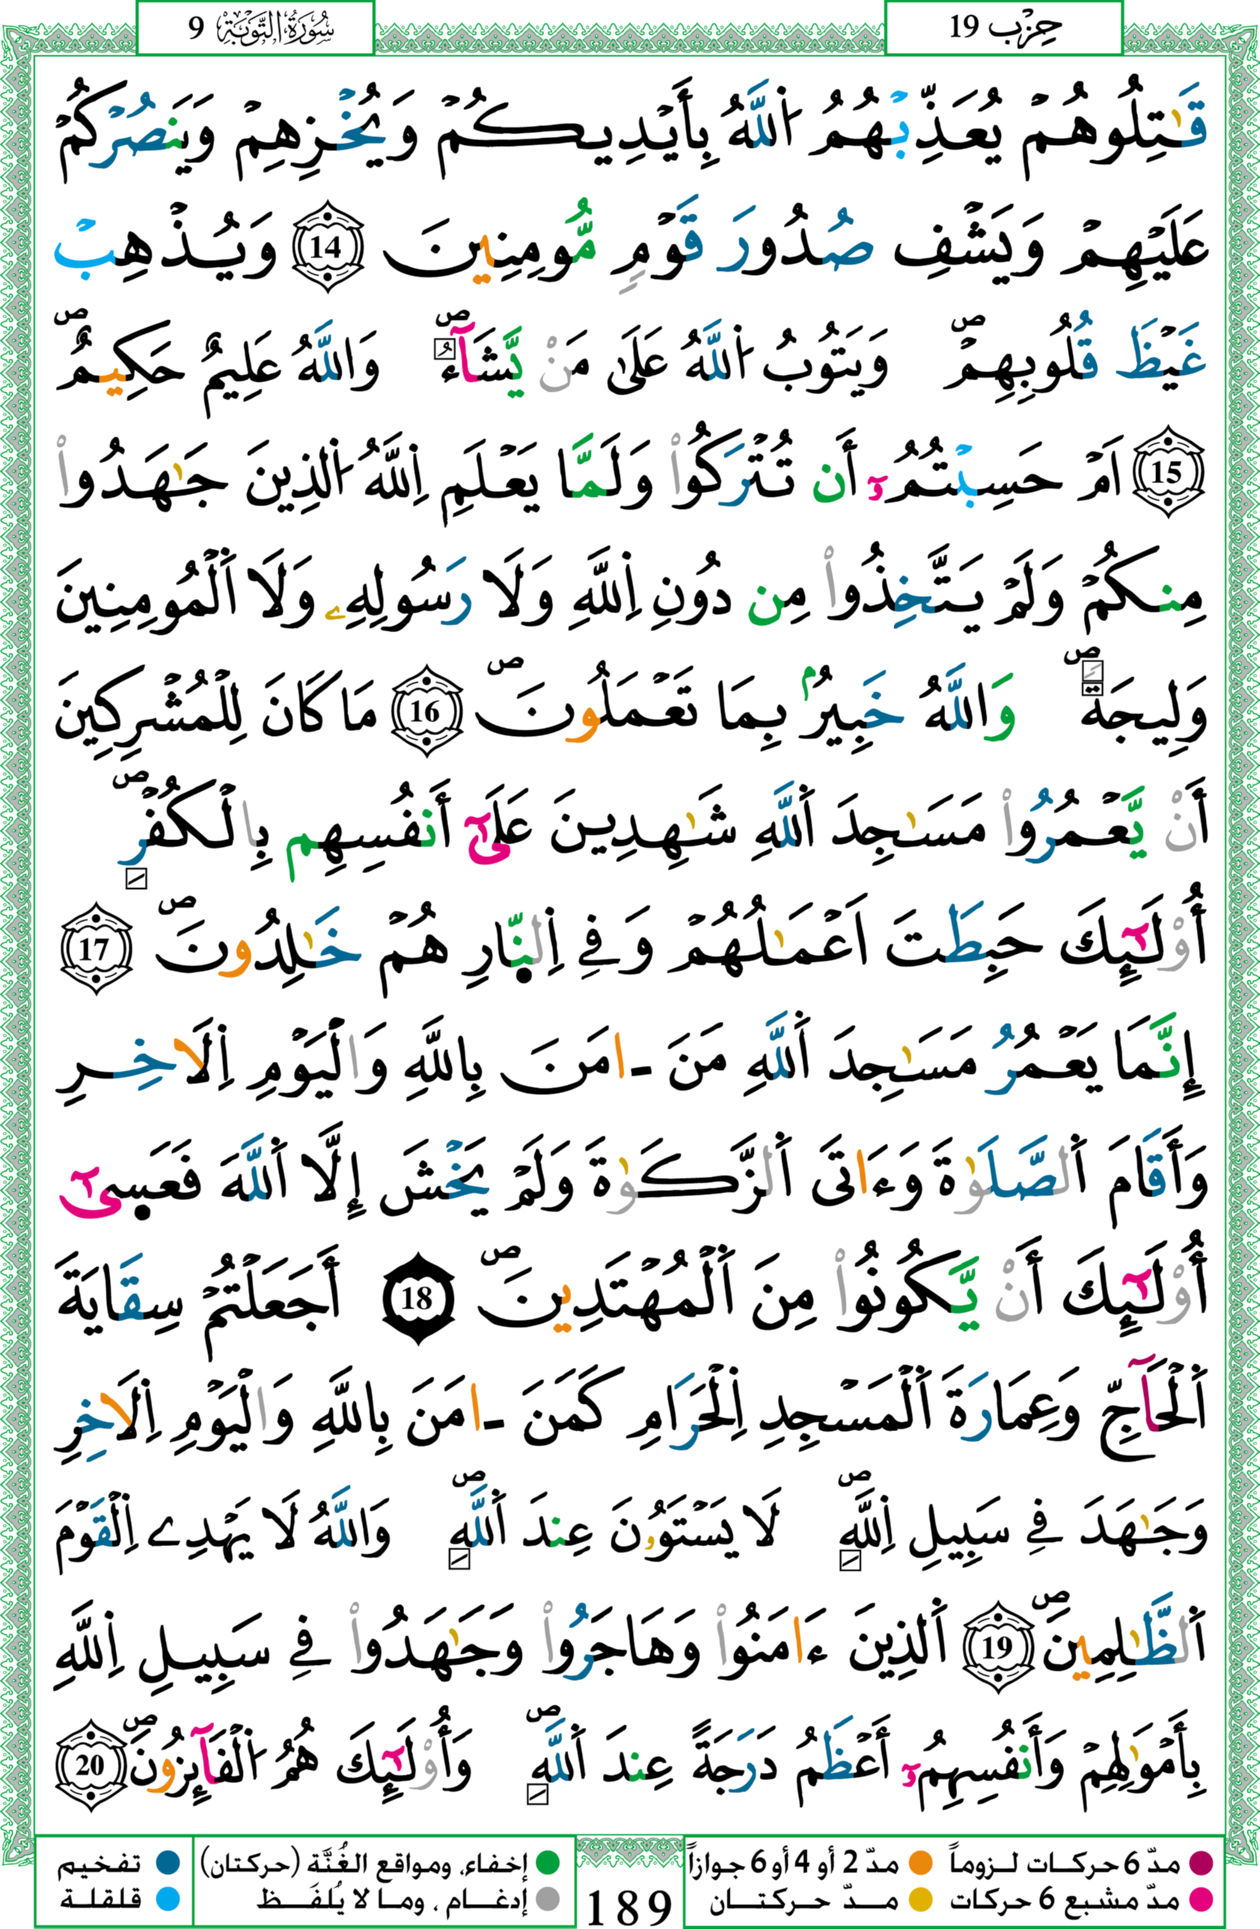 حِزْب 19
سُورَةُ التَّوْبَة 9
قَـٰتِلُوهُمْ يُعَذِّبْهُمُ اُللَّهُ بِأَيْدِيكُمْ وَيُخْزِهِمْ وَيَنصُرْكُمْ
عَلَيْهِمْ وَيَشْفِ صُدُورَ قَوْمٍ مُّومِنِينَ 14 وَيُذْهِبْ
غَيْظَ قُلُوبِهِمْ ۖ وَيَتُوبُ اُللَّهُ عَلَىٰ مَنْ يَّشَآءُ ۖ وَاللَّهُ عَلِيمٌ حَكِيمٌ ۖ
15 اَمْ حَسِبْتُمُۥٓ أَن تُتْرَكُواْ وَلَمَّا يَعْلَمِ اِللَّهُ اُلذِينَ جَـٰهَدُواْ
مِنكُمْ وَلَمْ يَتَّخِذُواْ مِن دُونِ اِللَّهِ وَلَا رَسُولِهِۦ وَلَا اَلْمُومِنِينَ
وَلِيجَةً ۖ وَاللَّهُ خَبِيرُۢ بِمَا تَعْمَلُونَ ۖ 16 مَا كَانَ لِلْمُشْرِكِينَ
أَنْ يَّعْمُرُواْ مَسَـٰجِدَ اَللَّهِ شَـٰهِدِينَ عَلَىٰٓ أَنفُسِهِم بِالْكُفْرِ ۖ
أُوْلَـٰٓئِكَ حَبِطَتَ اَعْمَـٰلُهُمْ وَفِي اِلنّ۪ارِ هُمْ خَـٰلِدُونَ ۖ 17
إِنَّمَا يَعْمُرُ مَسَـٰجِدَ اَللَّهِ مَنَ ـ امَنَ بِاللَّهِ وَالْيَوْمِ اِلَاخِرِ
وَأَقَامَ اَلصَّلَوٰةَ وَءَاتَى اَلزَّكَوٰةَ وَلَمْ يَخْشَ إِلَّا اَللَّهَ فَعَس۪ىٰٓ
أُوْلَـٰٓئِكَ أَنْ يَّكُونُواْ مِنَ اَلْمُهْتَدِينَ ۖ 18 أَجَعَلْتُمْ سِقَايَةَ
اَلْحَآجِّ وَعِمَارَةَ اَلْمَسْجِدِ اِلْحَرَامِ كَمَنَ ـ امَنَ بِاللَّهِ وَالْيَوْمِ اِلَاخِرِ
وَجَـٰهَدَ فِي سَبِيلِ اِللَّهِ ۖ لَا يَسْتَوُۥنَ عِندَ اَللَّهِ ۖ وَاللَّهُ لَا يَهْدِے اِلْقَوْمَ
اَلظَّـٰلِمِينَ ۖ 19 اَلذِينَ ءَامَنُواْ وَهَاجَرُواْ وَجَـٰهَدُواْ فِي سَبِيلِ اِللَّهِ
بِأَمْوَٰلِهِمْ وَأَنفُسِهِمُۥٓ أَعْظَمُ دَرَجَةً عِندَ اَللَّهِ ۖ وَأُوْلَـٰٓئِكَ هُمُ اُلْفَآئِزُونَ ۖ 20
مدّ 6 حركات لـزوماً
مدّ 2 أو 4 أو 6 جوازاً
إخفاء، ومواقع الغُنَّة (حركتان)
تفخيم
مدّ مشبع 6 حركات
مدّ حركتـان
إدغـام ، ومـا لا يُلفَـظ
قلقلة
189